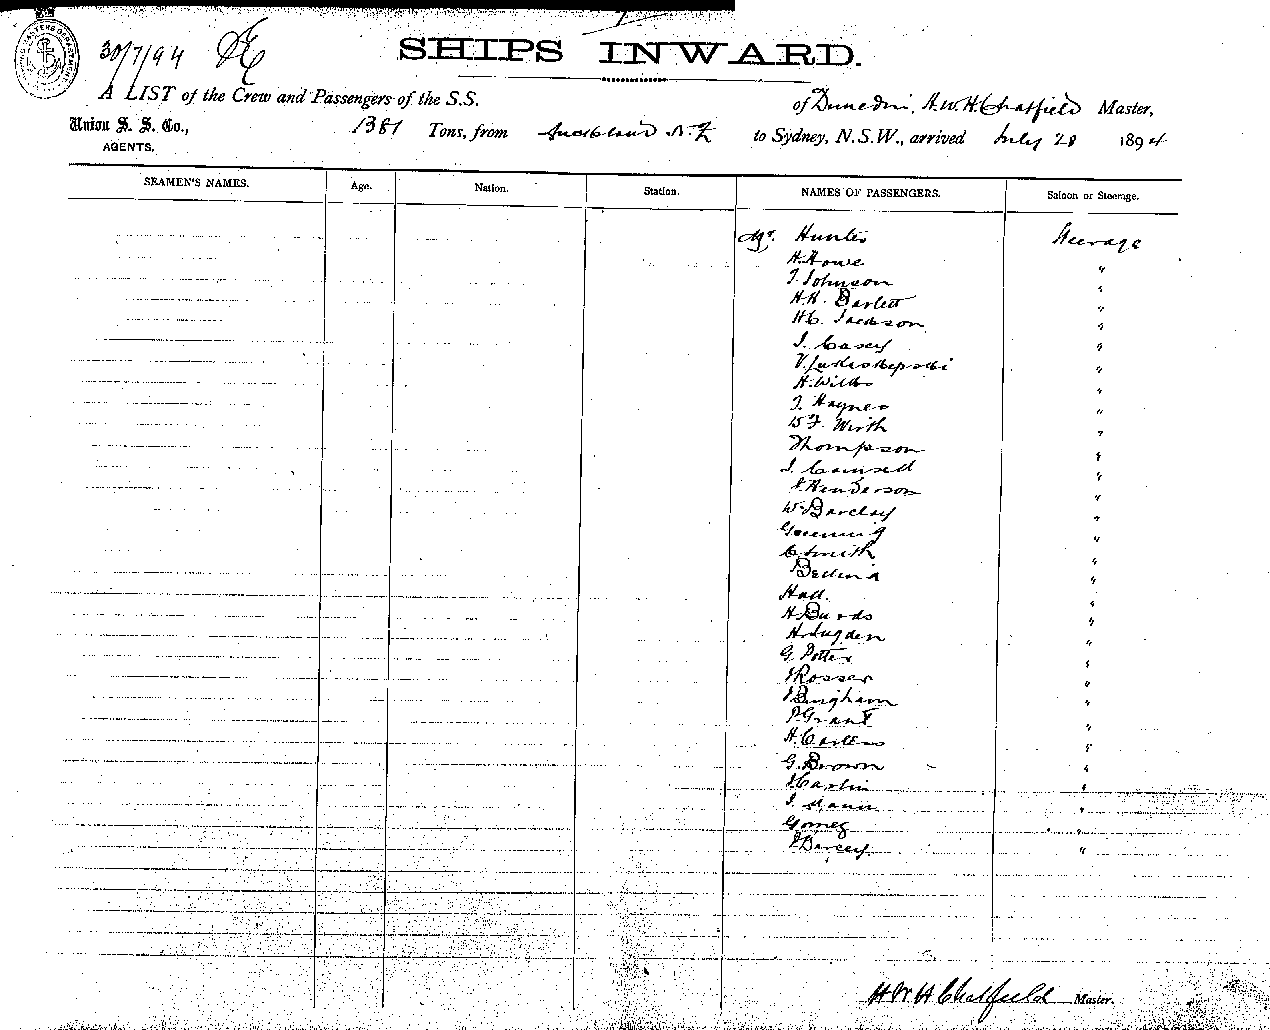 30/7/94
SHIPS INWARD.
A LIST of the Crew and Passengers of the S.S. of Dunedin, H.W.H. Chatfield Master,
Union S. S. Co., 1381 Tons, from Auckland N.Z to Sydney, N.S.W., arrived July 28 1894
AGENTS.
SEAMEN'S NAMES. Age. Nation. Station. NAMES OF PASSENGERS. Saloon or Steerage.
Mr. Hunter Steerage
H. Howe "
T. Johnson "
H.H. Barlett "
H.C. Jackson "
J. Casey "
V. "
H. Wilks "
T. Haynes "
W.F. Wirth "
Thompson "
J. "
J. Henderson "
W. Barclay "
Greening "
C Smith "
"
Hall. "
H "
H. Sugden "
G. Potter "
J Rosser "
J Bingham "
P. Grant "
H. "
G. Brown "
J Carlin "
J. Mann "
Gomez "
J Darcey "
H W H Chatfield Master.